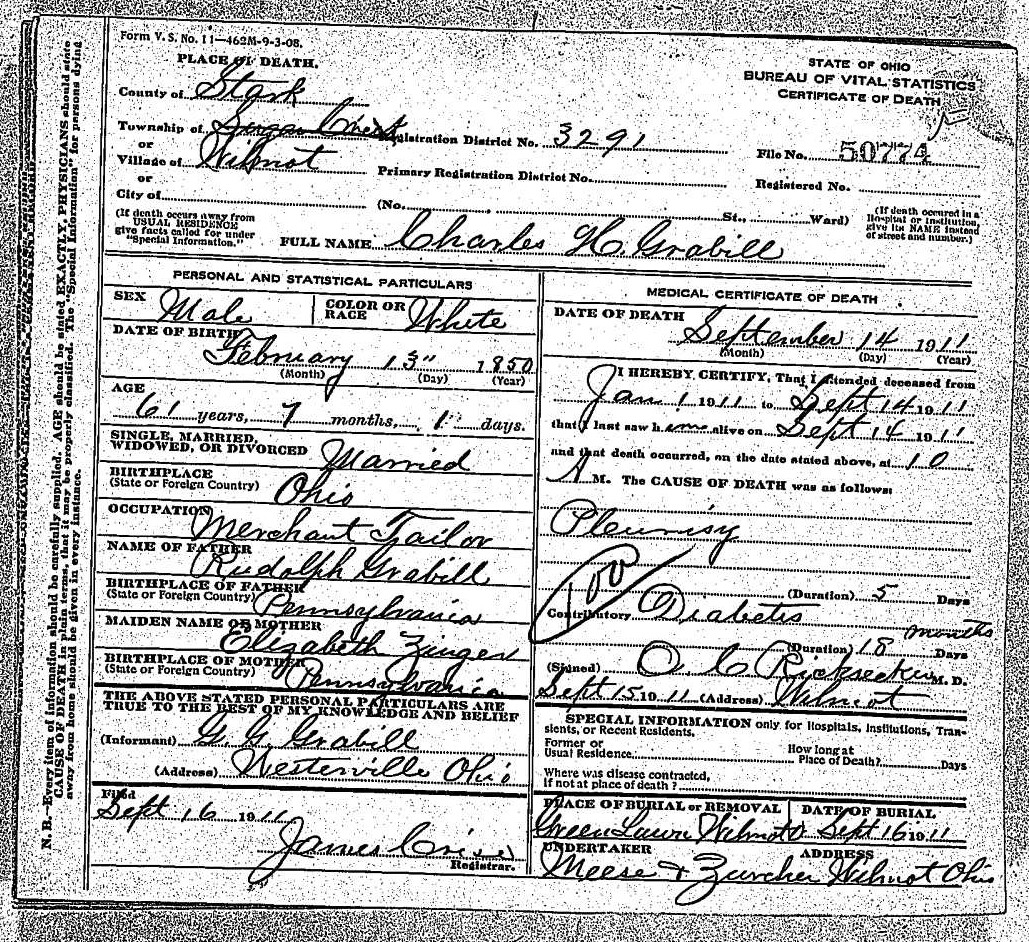 Form V. S. No. 11—462M-9-3-08.
PLACE OF DEATH.
STATE OF OHIO
BUREAU OF VITAL STATISTICS
CERTIFICATE OF DEATH
County of Stark
Township of Sugar Creek Registration District No. 3291
or
Village of Wilmot Primary Registration District No.
File No. 50774
or
Registered No.
City of (No. , St., Ward)
(If death occurs away from USUAL RESIDENCE give facts called for under "Special Information.")
(If death occured in a Hospital or Institution, give its NAME instead of street and number.)
FULL NAME Charles H. Grabill
PERSONAL AND STATISTICAL PARTICULARS
SEX Male COLOR OR RACE White
DATE OF BIRTH
February 13" 1850
(Month) (Day) (Year)
AGE
61 years, 7 months, 1 days.
SINGLE, MARRIED, WIDOWED, OR DIVORCED Married
BIRTHPLACE
(State or Foreign Country) Ohio
OCCUPATION Merchant Tailor
NAME OF FATHER Rudolph Grabill
BIRTHPLACE OF FATHER
(State or Foreign Country) Pennsylvania
MAIDEN NAME OF MOTHER Elizabeth
BIRTHPLACE OF MOTHER
(State or Foreign Country) Pennsylvania
THE ABOVE STATED PERSONAL PARTICULARS ARE
TRUE TO THE BEST OF MY KNOWLEDGE AND BELIEF
(Informant) G. G. Grabill
(Address) Westerville Ohio
Filed
Sept 16 1911
James Crise
Registrar.
MEDICAL CERTIFICATE OF DEATH
DATE OF DEATH
September 14 1911
(Month) (Day) (Year)
I HEREBY CERTIFY, That I attended deceased from
Jan 1 1911 to Sept 14 1911
that I last saw him alive on Sept 14 1911
and that death occurred, on the date stated above, at 10
A M. The CAUSE OF DEATH was as follows:
Pleurisy
100
(Duration) 5 Days
Contributory Diabetes
months
(Duration) 18 Days
(Signed) O C Ricksecker M. D.
Sept 15 1911 (Address) Wilmot
SPECIAL INFORMATION only for Hospitals, Institutions, Tran-
sients, or Recent Residents.
Former or Usual Residence How long at Place of Death? Days
Where was disease contracted,
If not at place of death?
PLACE OF BURIAL or REMOVAL DATE OF BURIAL
Green Lawn Wilmot O Sept 16 1911
UNDERTAKER ADDRESS
Meese & Zurcher Wilmot Ohio
N. B.—Every item of information should be carefully supplied. AGE should be stated EXACTLY. PHYSICIANS should state
CAUSE OF DEATH in plain terms, that it may be properly classified. The "Special Information" for persons dying
away from home should be given in every instance.